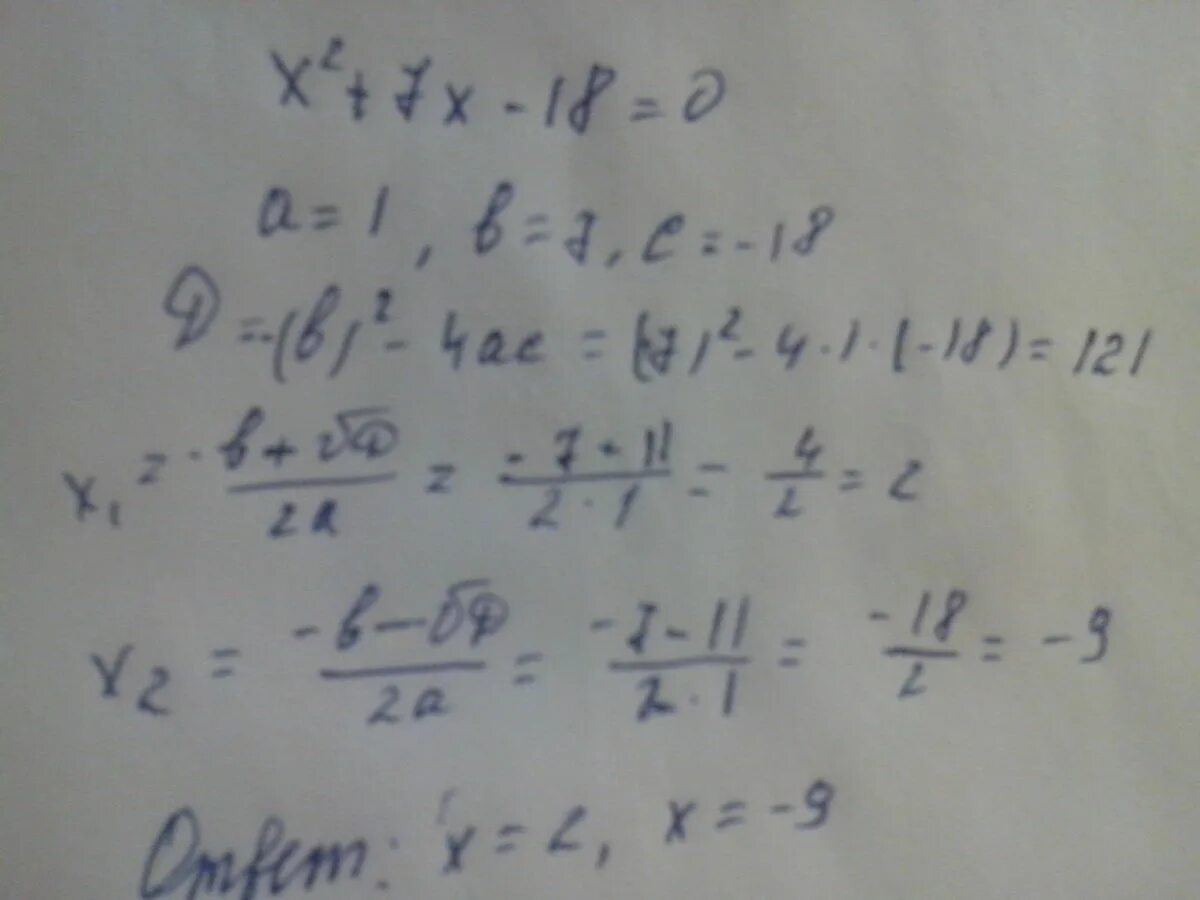 x² + 7x - 18 = 0
a = 1, b = 7, c = -18
D = -(b)² - 4ac = (7)² - 4 · 1 · (-18) = 121
x₁ = (-b + √D)/(2a) = (-7 - 11)/(2 · 1) = 4/2 = 2
x₂ = (-b - √D)/(2a) = (-7 - 11)/(2 · 1) = -18/2 = -9
Ответ: x = 2, x = -9